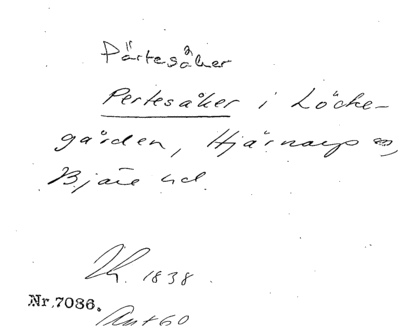 Pärtesåker
Pertesåker i Löcke-
gården, Hjärnarp sn,
Bjäre hd.
1838
Nr. 7036.